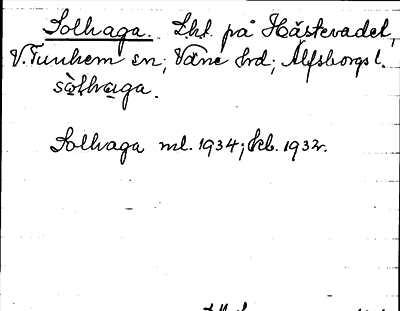 Solhaga. Lht. på Hästevadet,
V. Tunhem sn; Väne hrd; Älfsborgs l.
sòlhaga.
Solhaga ml. 1934; kb. 1932.